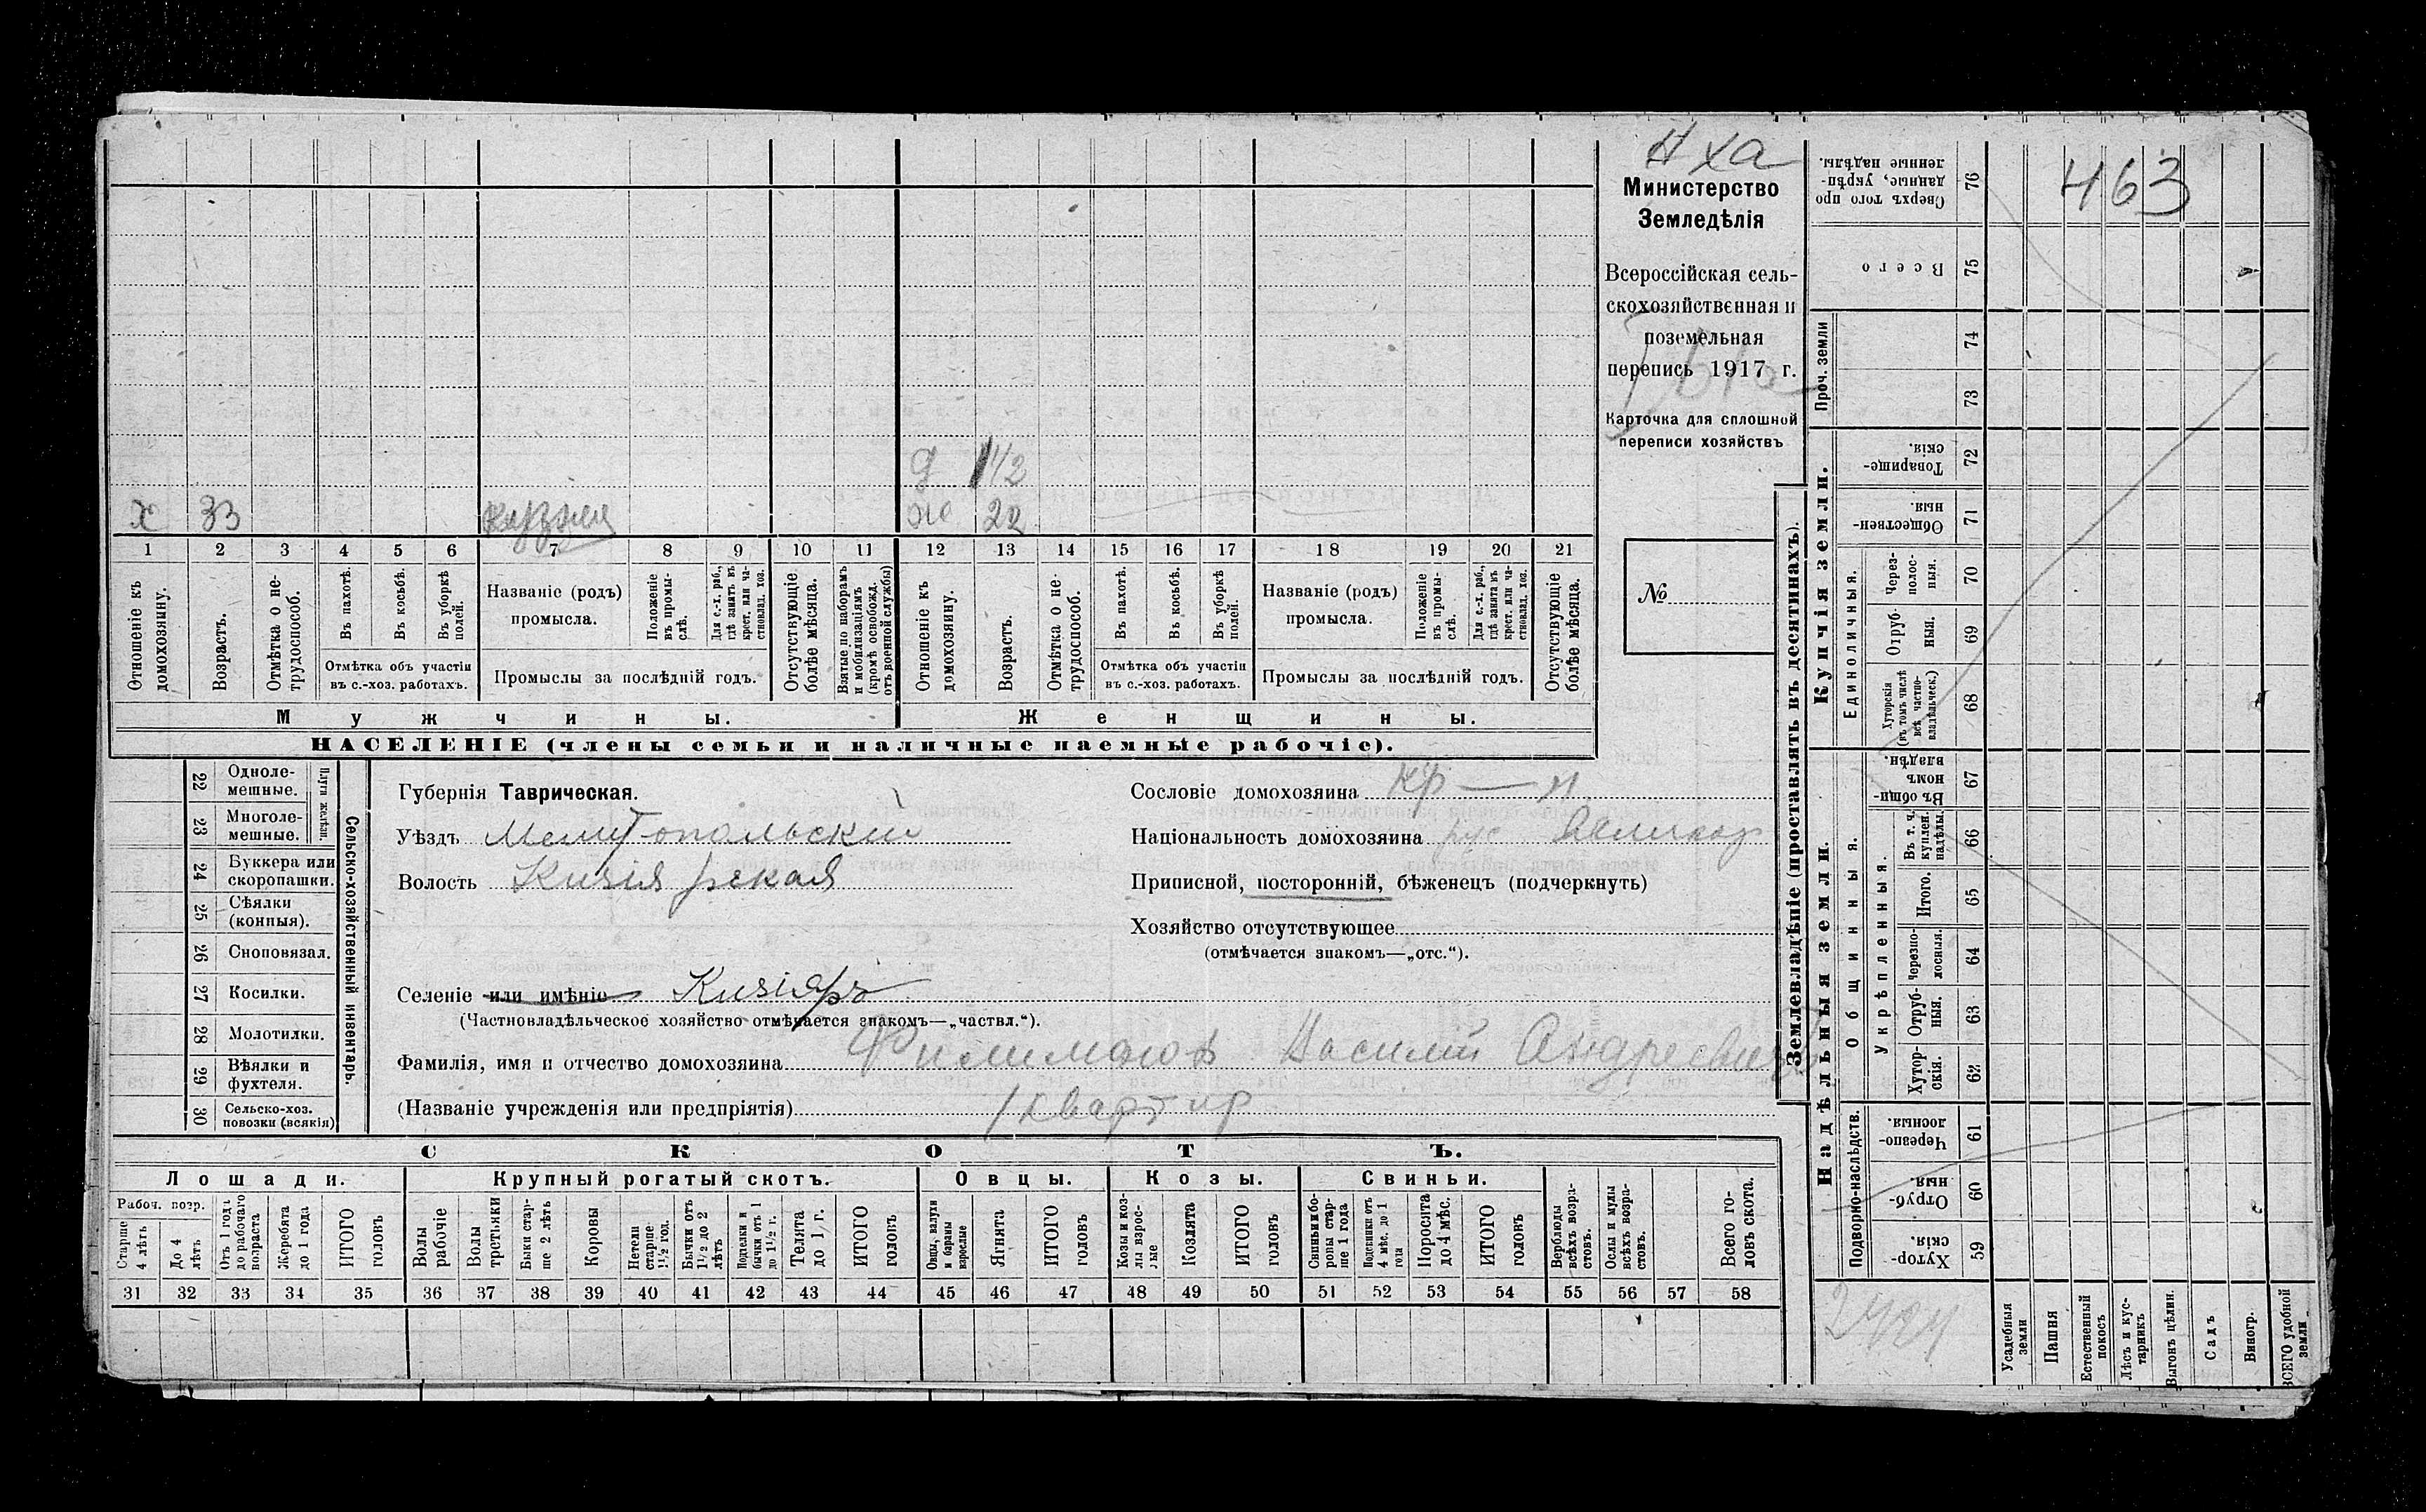 463
Министерство
Земледѣлія
Всероссійская сель-
скохозяйственная и
поземельная
перепись 1917 г.
Карточка для сплошной
переписи хозяйствъ
№
д 1 1/2
х 33
ж 22
1 2 3 4 5 6 7 8 9 10 11 12 13 14 15 16 17 18 19 20 21
Отношеніе къ домохозяину.
Возрастъ.
Отмѣтка о не-трудоспособ.
Въ пахотѣ.
Въ косьбѣ.
Въ уборкѣ полей.
Отмѣтка объ участіи
въ с.-хоз. работахъ.
Названіе (родъ)
промысла.
Положеніе въ промы-слѣ.
Для с.-х. раб., гдѣ занятъ въ крест. или ча-стновлад. хоз.
Промыслы за послѣдній годъ.
Отсутствующіе болѣе мѣсяца.
Взятые по наборамъ и мобилизаціямъ (кромѣ освобожд. отъ военной службы)
Отношеніе къ домохозяину.
Возрастъ.
Отмѣтка о не-трудоспособ.
Въ пахотѣ.
Въ косьбѣ.
Въ уборкѣ полей.
Отмѣтка объ участіи
въ с.-хоз. работахъ.
Названіе (родъ)
промысла.
Положеніе въ промы-слѣ.
Для с.-х. раб., гдѣ занята въ крест. или ча-стновлад. хоз.
Промыслы за послѣдній годъ.
Отсутствующіе болѣе мѣсяца.
Мужчины.
Женщины.
НАСЕЛЕНІЕ (члены семьи и наличные наемные рабочіе).
Сельско-хозяйственный инвентарь.
22 Одноле-мешные.
23 Многоле-мешные.
24 Буккера или скоропашки.
25 Сѣялки (конныя).
26 Сноповязал.
27 Косилки.
28 Молотилки.
29 Вѣялки и фухтеля.
30 Сельско-хоз. повозки (всякія)
Губернія Таврическая.
Уѣздъ Мелитопольскій
Волость Кизіярская
Селеніе или имѣніе Кизіяръ
(Частновладѣльческое хозяйство отмѣчается знакомъ—„частвл.“).
Фамилія, имя и отчество домохозяина Филимоновъ Василій Андреевичъ
(Названіе учрежденія или предпріятія) квартир
Сословіе домохозяина кр—н
Національность домохозяина рус великор
Приписной, посторонній, бѣженецъ (подчеркнуть)
Хозяйство отсутствующее
(отмѣчается знакомъ—„отс.“).
СКОТЪ.
Лошади.
Крупный рогатый скотъ.
Овцы.
Козы.
Свиньи.
Рабоч. возр.
Старше 4 лѣтъ
До 4 лѣтъ
Отъ 1 года до рабочаго возраста
Жеребята до 1 года
ИТОГО головъ
Волы рабочіе
Волы третьяки
Быки стар-ше 2 лѣтъ
Коровы
Нетели старше 1½ год.
Бычки отъ 1½ до 2 лѣтъ
Подтелки и бычки отъ 1 до 1½ г.
Телята до 1 г.
ИТОГО головъ
Овцы, валухи и бараны взрослые
Ягнята
ИТОГО головъ
Козы и коз-лы взрос-лые
Козлята
ИТОГО головъ
Свиньи и бо-ровы стар-ше 1 года
Подсвинки отъ 4 мѣс. до 1 года
Поросята до 4 мѣс.
ИТОГО головъ
Верблюды всѣхъ возра-стовъ.
Ослы и мулы всѣхъ возра-стовъ.
Всего го-ловъ скота.
31 32 33 34 35 36 37 38 39 40 41 42 43 44 45 46 47 48 49 50 51 52 53 54 55 56 57 58
Землевладѣніе (проставлять въ десятинахъ).
Надѣльныя земли.
Купчія земли.
Проч. земли
Подворно-наслѣдств.
Общинныя.
Укрѣпленныя.
Единоличныя.
76 Сверхъ того про данные, укрѣп-ленные надѣлы.
75 Всего
74
73
72 Товарище-скія.
71 Обществен-ныя.
70 Через-полос-ныя.
69 Отруб-ныя.
68 Хуторскія (въ томъ числѣ всѣ частно-владѣльческ.)
67 Въ общин-номъ владѣн.
66 Въ т. ч. куплен. надѣлы.
65 Итого.
64 Черезпо-лосныя.
63 Отруб-ныя.
62 Хутор-скія.
61 Черезпо-лосныя.
60 Отруб-ныя.
59 Хутор-скія.
Усадебныя земли
Пашня
Естественный покосъ
Лѣсъ и кус-тарникъ
Выгонъ цѣлин.
Садъ
Виногр.
ВСЕГО удобной земли